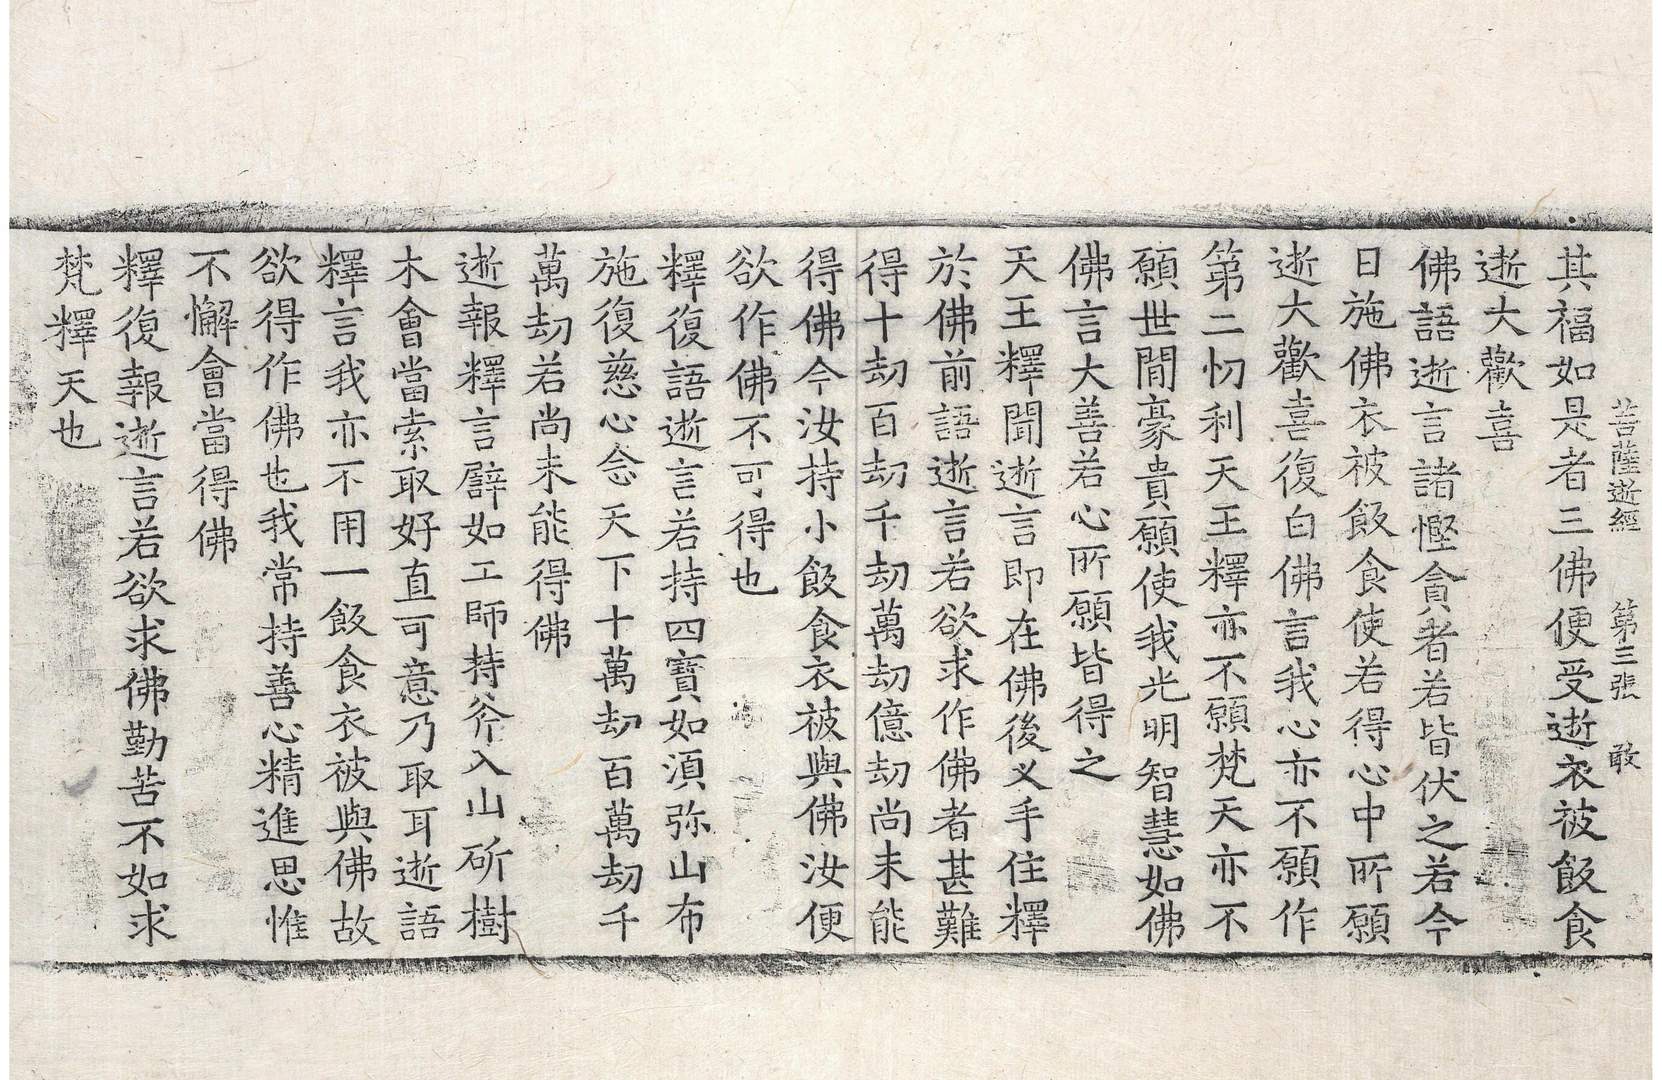 菩薩逝經 第三張 敢
其福如是者三佛便受逝衣被飯食
逝大歡喜
佛語逝言諸慳貪者若皆伏之若今
日施佛衣被飯食使若得心中所願
逝大歡喜復白佛言我心亦不願作
第二忉利天王釋亦不願梵天亦不
願世閒豪貴願使我光明智慧如佛
佛言大善若心所願皆得之
天王釋聞逝言即在佛後叉手住釋
於佛前語逝言若欲求作佛者甚難
得十劫百劫千劫萬劫億劫尚未能
得佛今汝持小飯食衣被與佛汝便
欲作佛不可得也
釋復語逝言若持四寶如湏弥山布
施復慈心念天下十萬劫百萬劫千
萬劫若尚未能得佛
逝報釋言譬如工師持斧入山斫樹
木會當索取好直可意乃取耳逝語
釋言我亦不用一飯食衣被與佛故
欲得作佛也我常持善心精進思惟
不懈會當得佛
釋復報逝言若欲求佛勤苦不如求
梵釋天也